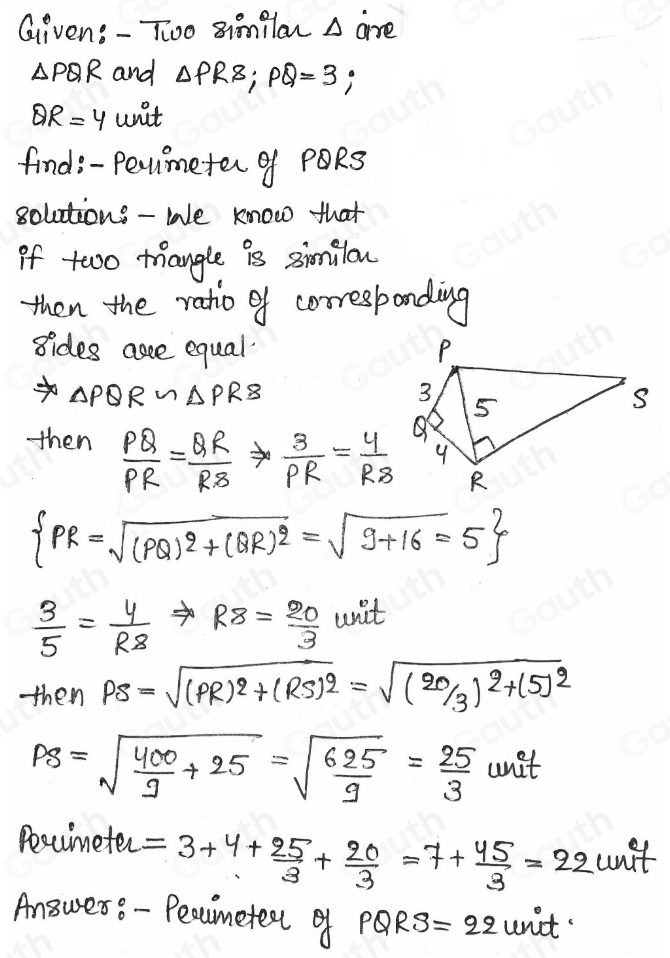 Given:- Two similar Δ are
ΔPQR and ΔPRS; PQ=3;
QR=4 unit
find:- Perimeter of PQRS
solution:- We know that
if two triangle is similar
then the ratio of corresponding
sides are equal.
⇒ ΔPQR ∽ ΔPRS
then PQ/PR = QR/RS ⇒ 3/PR = 4/RS
{PR = √(PQ)²+(QR)² = √9+16 = 5}
3/5 = 4/RS ⇒ RS = 20/3 unit
then PS = √(PR)²+(RS)² = √(20/3)²+(5)²
PS = √400/9 + 25 = √625/9 = 25/3 unit
Perimeter = 3+4+25/3+20/3 = 7+45/3 = 22 unit
Answer:- Perimeter of PQRS = 22 unit.
P
3
5
S
Q
4
R
Gauth